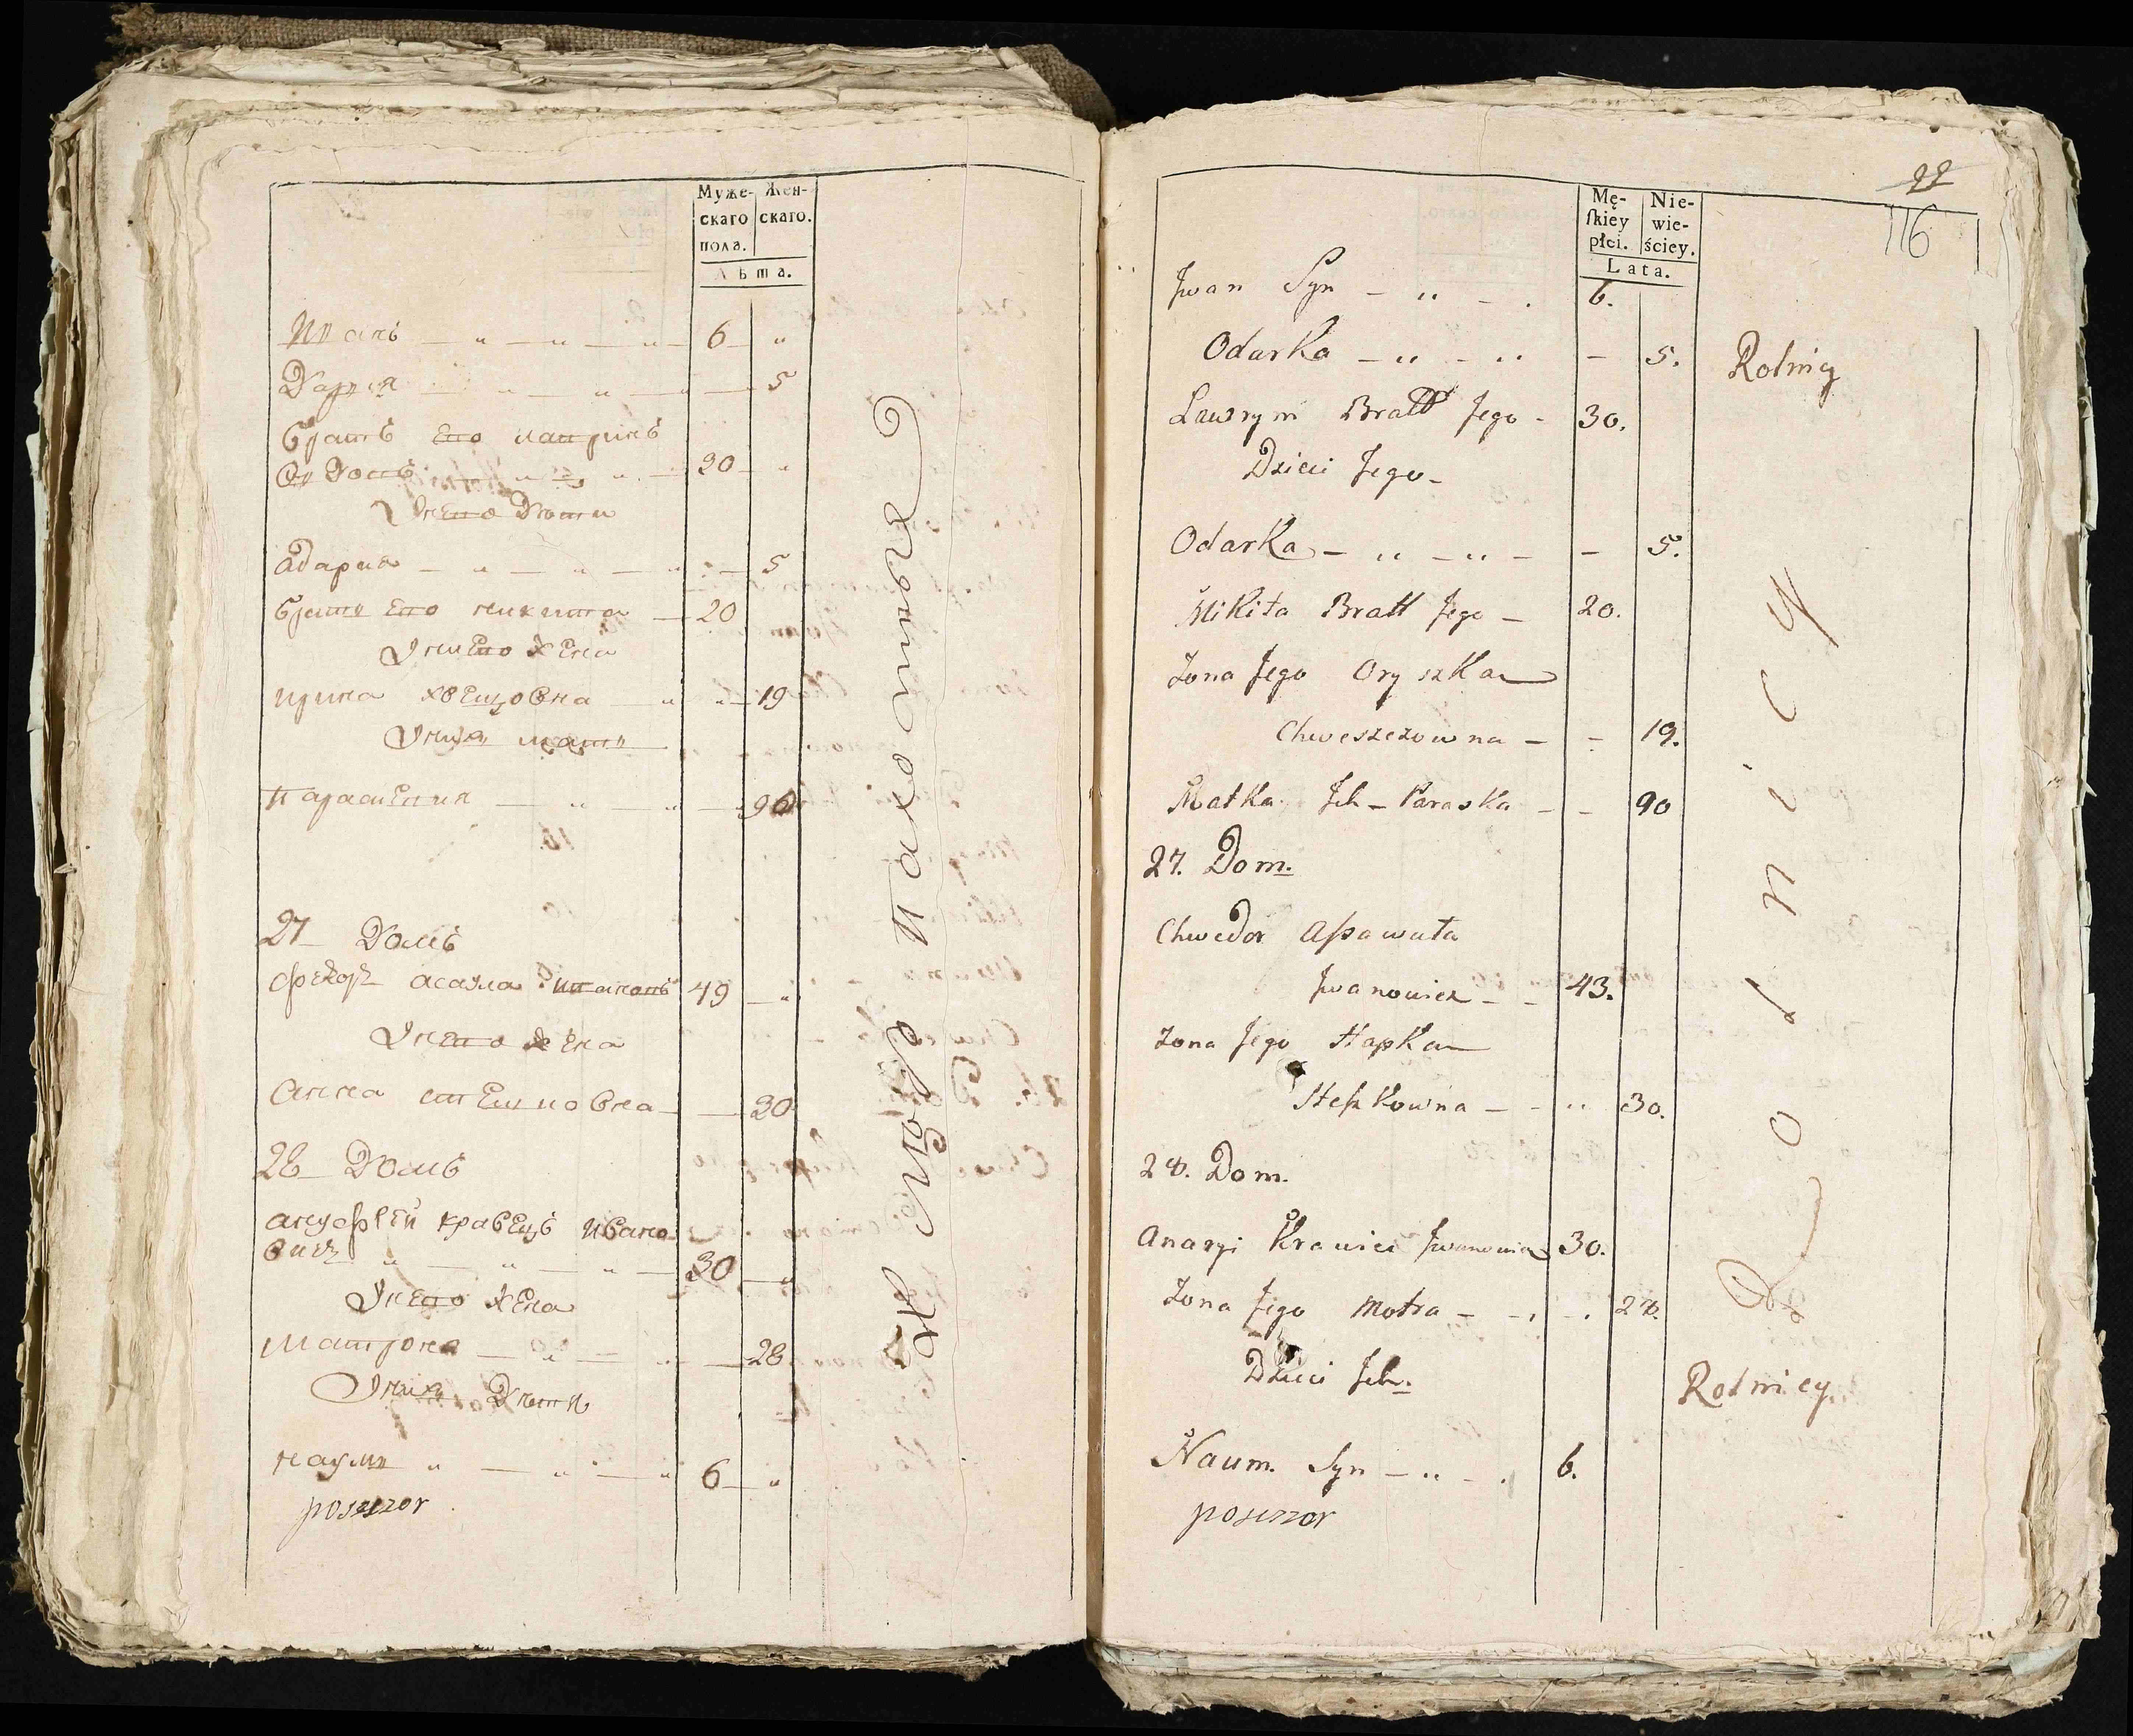 Муже- Жен-
скаго скаго.
пола.
Лѣта.
Иванъ — „ — „ — „ 6 „
Дария — „ — „ — „ — 5
братъ Его лавринъ
вдовъ — „ — „ 30 „
У нЕго Дѣти
адарка — „ — „ — „ — 5
братъ Его никита — 20
У нЕго жЕна
ирина хвЕщовна — „ „ 19
У нихъ мать
ПараскЕвия — „ — „ — 90
27 Домъ
федоръ асаула ивановъ 49 — „
У нЕго жЕна
анна стЕцковна — — 30
28 Домъ
ануфрЕй кравЕцъ ивано
вичъ „ — „ — „ — 30 — „
У нЕго жЕна
матрона — „ — „ — 28
У нихъ Дѣти
наумъ „ — „ — „ 6 — „
posezzor
Хлѣборобы Пахотныя
22
116
Mę- Nie-
skiey wie-
płci. ściey.
Lata.
Jwan Syn — „ — . 6.
Odarka — „ — „ — 5. Rolnicy
Lawryn Bratt Jego - 30.
Dzieci Jego -
Odarka — „ — „ — — 5.
Mikita Bratt Jego — 20.
Zona Jego Oryszka
Chweszczowna — - 19.
Matka Jch - Paraska - - 90
27. Dom.
Chwedor Assawuta
Jwanowicz - - 43.
Zona Jego Hapka
Steckowna — - „ 30.
28. Dom.
Anazyi Krawiec Jwanowicz 30.
Zona Jego Motra - - . . 28.
Dzieci Jch. Rolnicy.
Naum. Syn — „ - . 6.
posezzor
Rolnicy